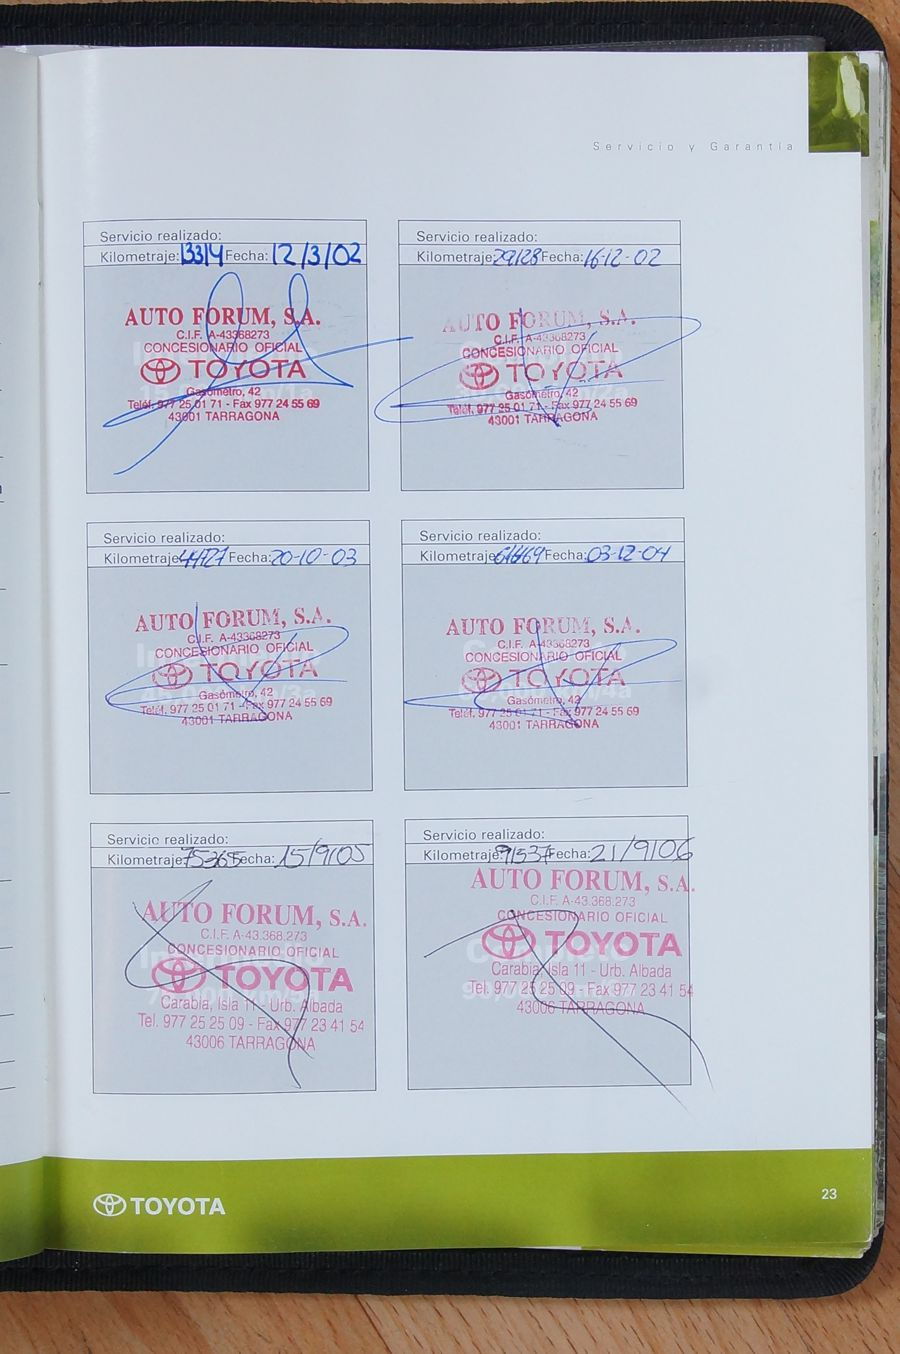 Servicio y Garantía
Servicio realizado:
Kilometraje: 13314 Fecha: 12/3/02
AUTO FORUM, S.A.
C.I.F. A-43368273
CONCESIONARIO OFICIAL
TOYOTA
Gasómetro, 42
Teléf. 977 25 01 71 - Fax 977 24 55 69
43001 TARRAGONA
Servicio realizado:
Kilometraje: 29128 Fecha: 16-12-02
AUTO FORUM, S.A.
C.I.F. A-43368273
CONCESIONARIO OFICIAL
TOYOTA
Gasómetro, 42
Teléf. 977 25 01 71 - Fax 977 24 55 69
43001 TARRAGONA
Servicio realizado:
Kilometraje: 44127 Fecha: 20-10-03
AUTO FORUM, S.A.
C.I.F. A-43368273
CONCESIONARIO OFICIAL
TOYOTA
Gasómetro, 42
Teléf. 977 25 01 71 - Fax 977 24 55 69
43001 TARRAGONA
Servicio realizado:
Kilometraje: Fecha: 03-12-04
AUTO FORUM, S.A.
C.I.F. A-43368273
CONCESIONARIO OFICIAL
TOYOTA
Gasómetro, 42
Teléf. 977 25 01 71 - Fax 977 24 55 69
43001 TARRAGONA
Servicio realizado:
Kilometraje: 75365 Fecha: 15/9/05
AUTO FORUM, S.A.
C.I.F. A-43.368.273
CONCESIONARIO OFICIAL
TOYOTA
Carabia, Isla 11 - Urb. Albada
Tel. 977 25 25 09 - Fax 977 23 41 54
43006 TARRAGONA
Servicio realizado:
Kilometraje: 91537 Fecha: 21/9/06
AUTO FORUM, S.A.
C.I.F. A-43.368.273
CONCESIONARIO OFICIAL
TOYOTA
Carabia, Isla 11 - Urb. Albada
Tel. 977 25 25 09 - Fax 977 23 41 54
43006 TARRAGONA
TOYOTA
23